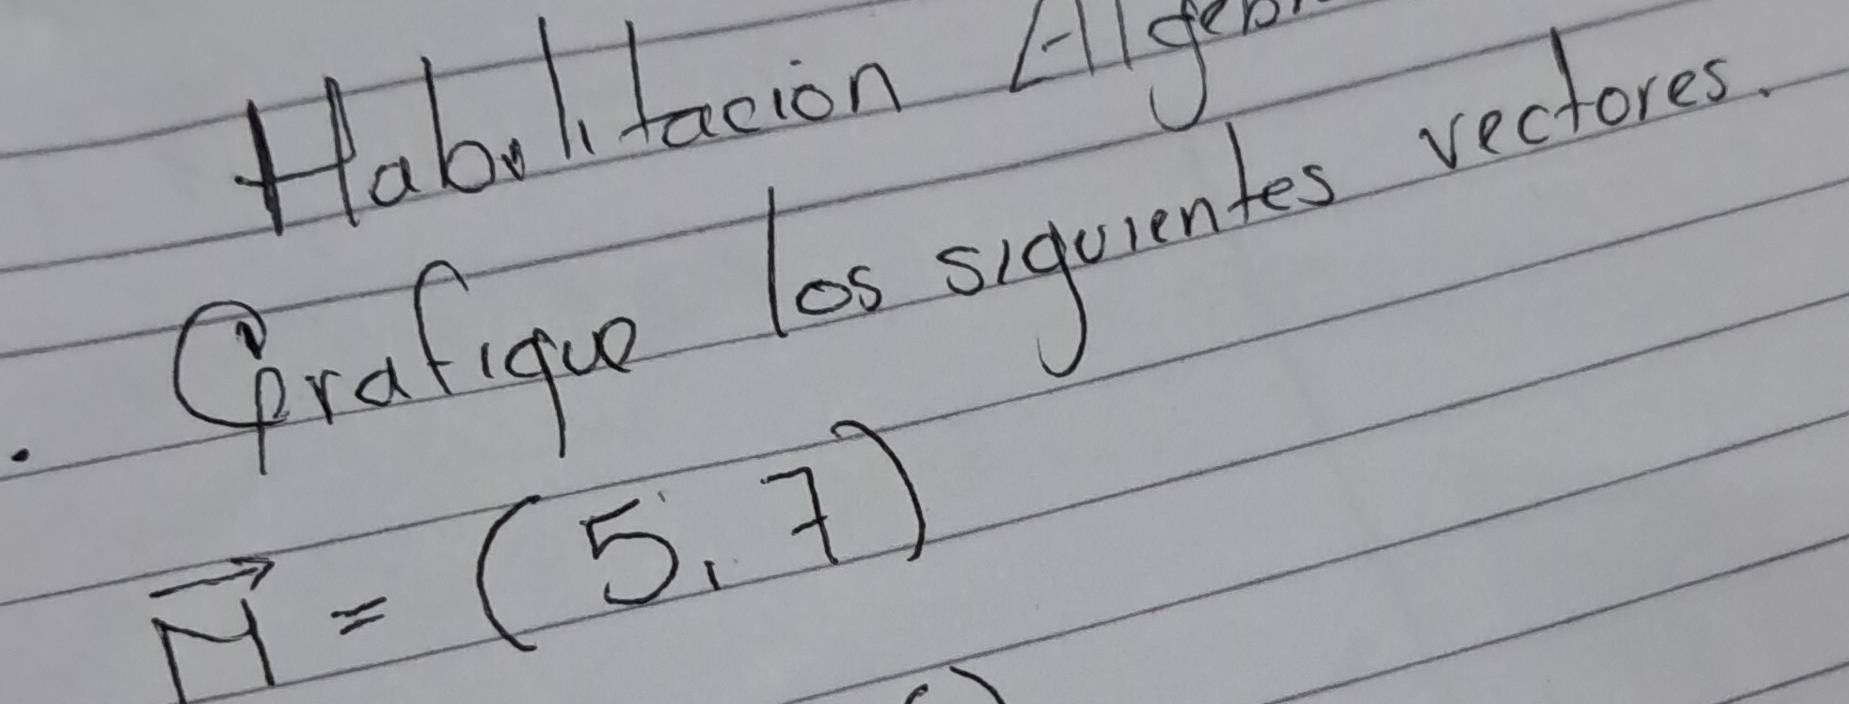 Habilitación
Grafique los siguientes vectores.
M = (5, 7)